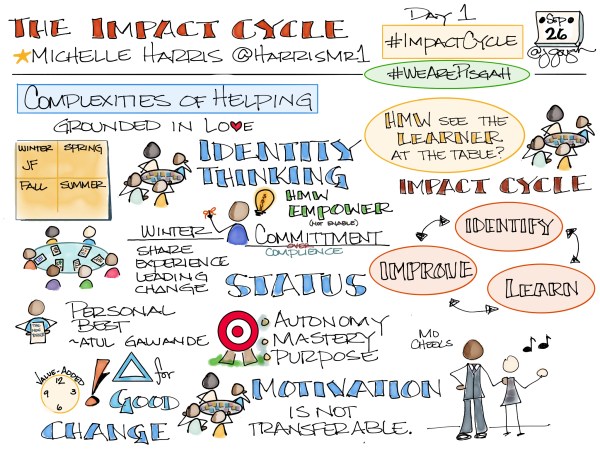 THE IMPACT CYCLE
MICHELLE HARRIS @HARRISMR1
DAY 1
#IMPACTCYCLE
#WEAREPISGAH
SEP
26
COMPLEXITIES OF HELPING
GROUNDED IN LOVE
WINTER SPRING
JF
FALL SUMMER
IDENTITY
THINKING
HMW SEE THE
LEARNER
AT THE TABLE?
HMW
EMPOWER
(NOT ENABLE)
WINTER
SHARE
EXPERIENCE
LEADING
CHANGE
COMMITTMENT
OVER
COMPLIENCE
STATUS
IMPACT CYCLE
IDENTIFY
LEARN
IMPROVE
PERSONAL
BEST
~ATUL GAWANDE
AUTONOMY
MASTERY
PURPOSE
MO
CHEEKS
VALUE-ADDED
12
3
6
9
! Δ for
GOOD
CHANGE
MOTIVATION
IS NOT
TRANSFERABLE.